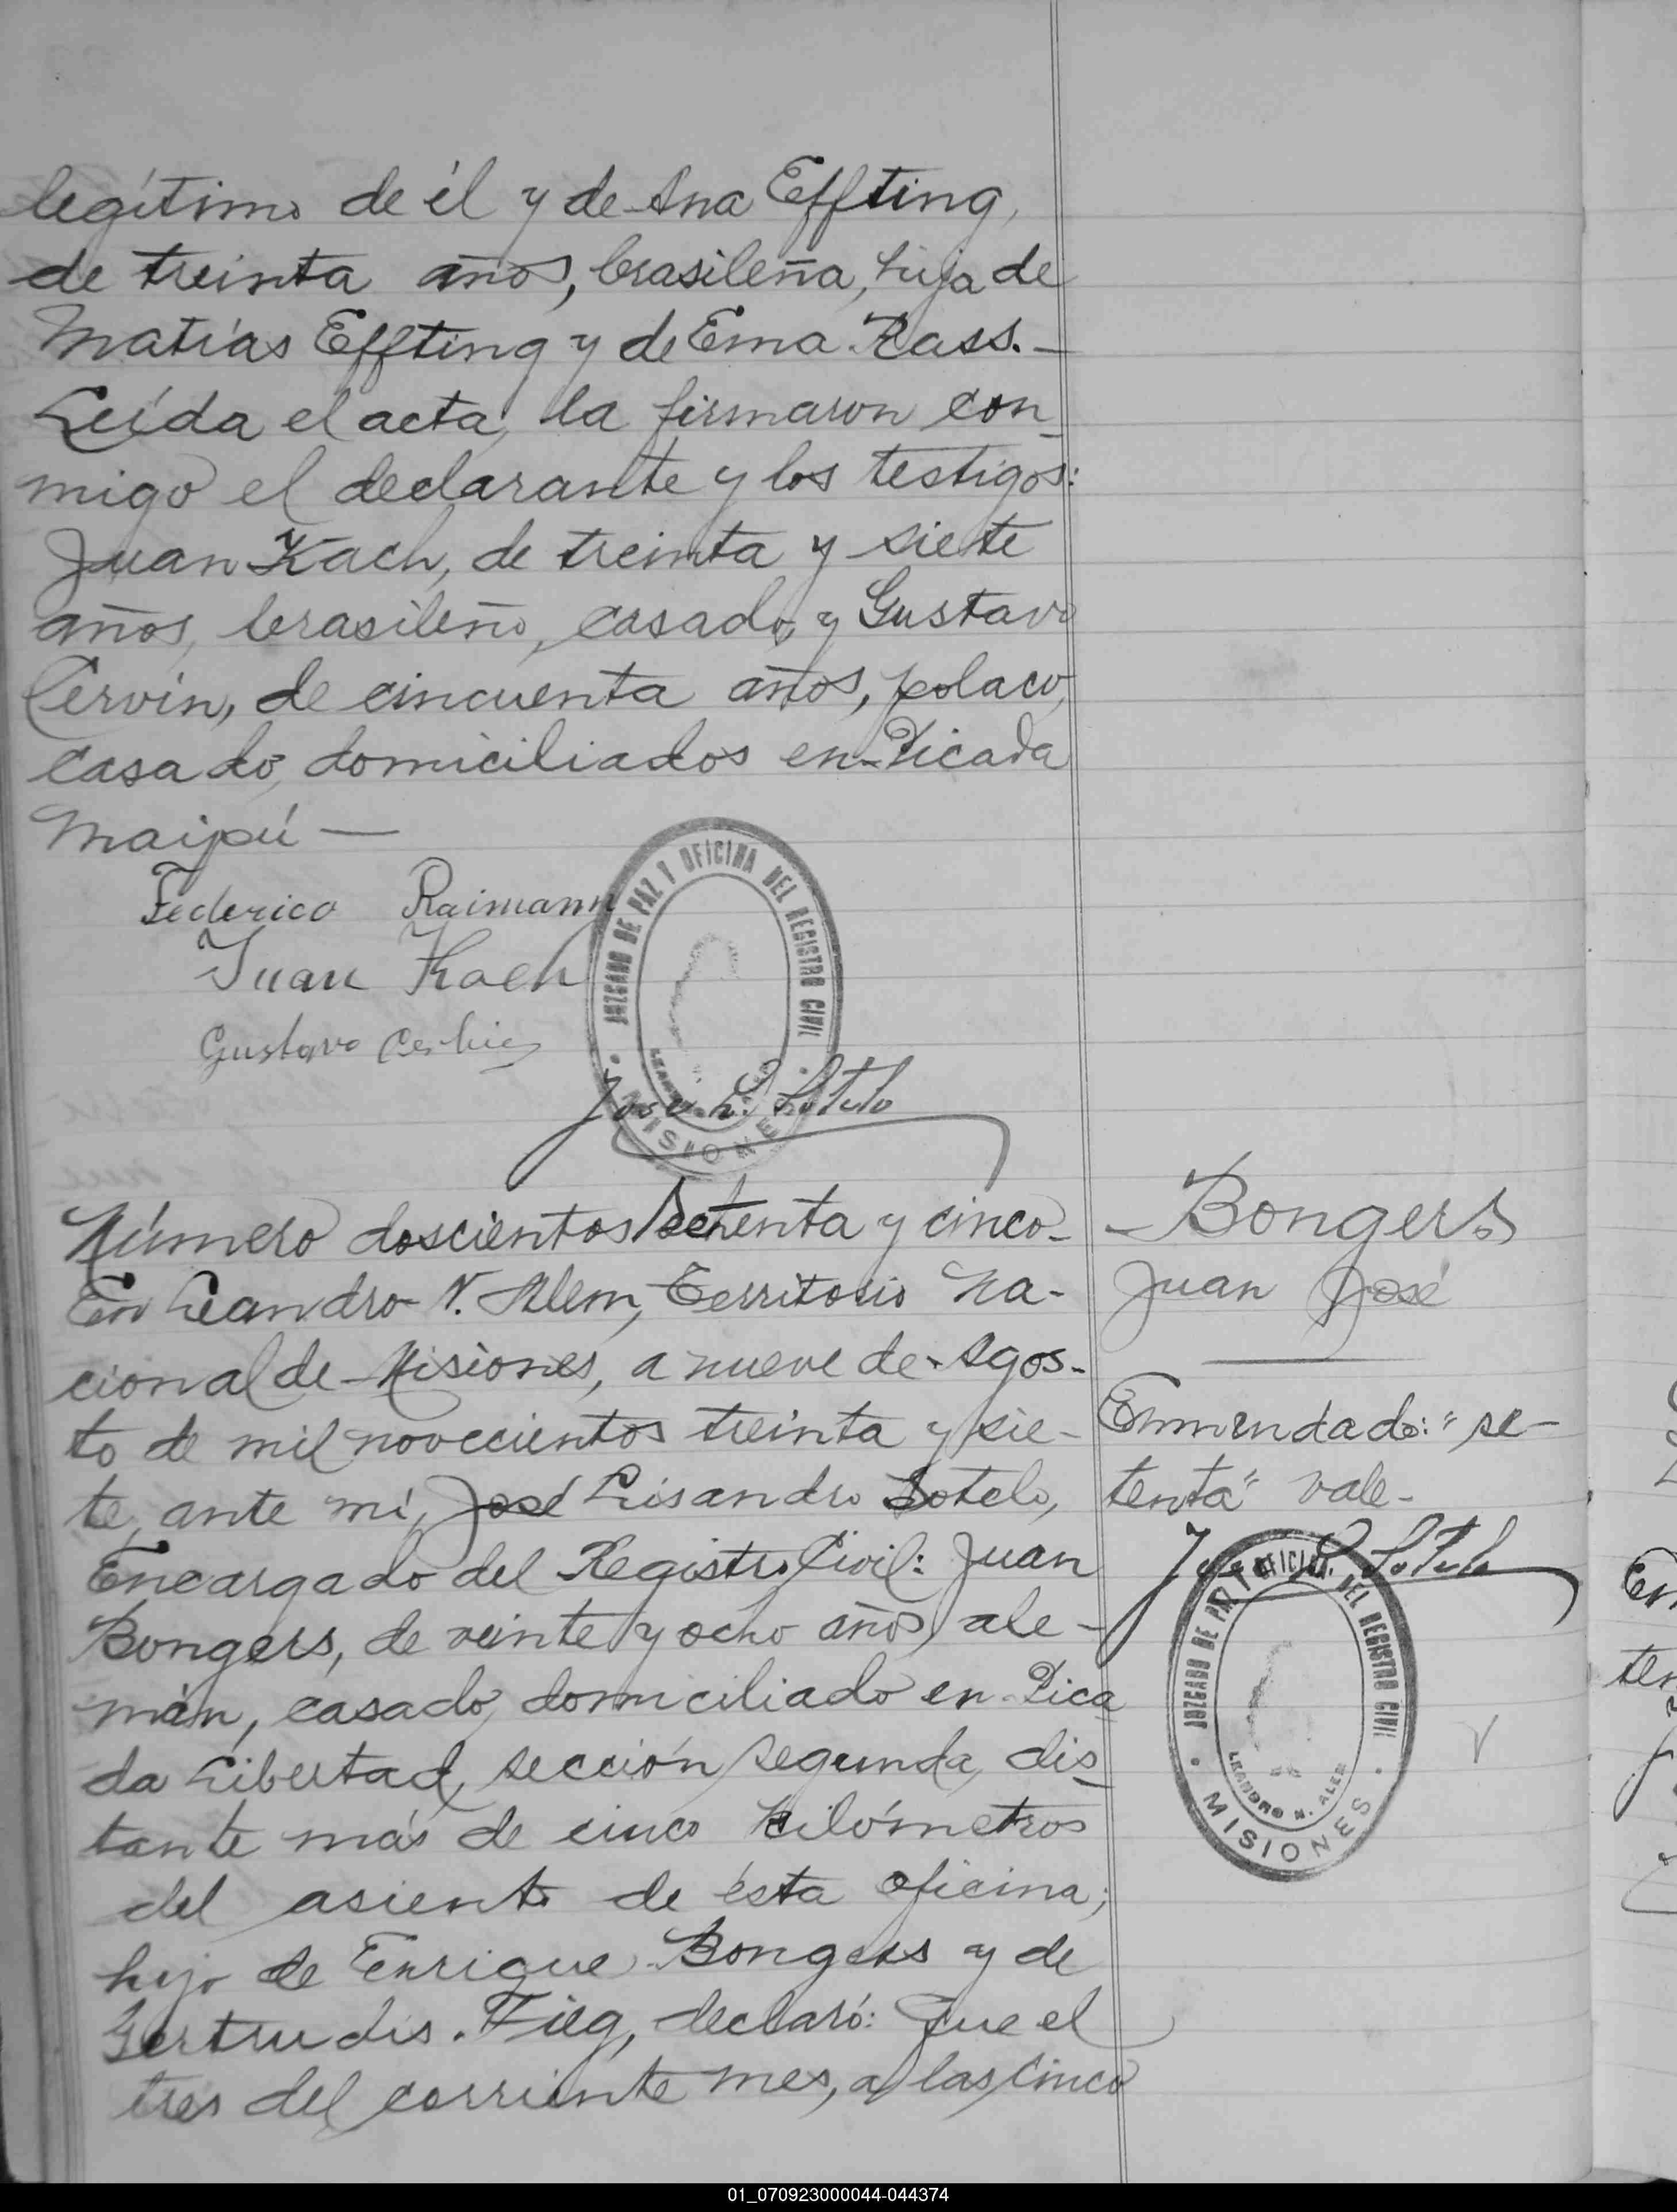 legítimo de él y de Ana Effting,
de treinta años, brasileña, hija de
Matías Effting y de Ema Rass.—
Leída el acta, la firmaron con-
migo el declarante y los testigos:
Juan Kach, de treinta y siete
años, brasileño, casado, y Gustavo
Cervin, de cincuenta años, polaco,
casado, domiciliados en Picada
Maipú —
Federico Raimann
Juan Koch
Gustavo
JUZGADO DE PAZ Y OFICINA DEL REGISTRO CIVIL
MISIONES
José L. Sotelo
Número doscientos setenta y cinco-
En Leandro N. Alem, Territorio Na-
cional de Misiones, a nueve de Agos-
to de mil novecientos treinta y sie-
te, ante mí, José Lisandro Sotelo,
Encargado del Registro Civil: Juan
Bongers, de veinte y ocho años, ale-
mán, casado, domiciliado en Pica
da Libertad, sección segunda, dis-
tante más de cinco kilómetros
del asiento de ésta oficina;
hijo de Enrique Bongers y de
Gertrudis Fieg, declaró: Que el
tres del corriente mes, a las cinco
— Bongers
Juan José
Enmendado: "se-
tenta" vale-
José L. Sotelo
JUZGADO DE PAZ Y OFICINA DEL REGISTRO CIVIL
LEANDRO N. ALEM
MISIONES
01_070923000044-044374